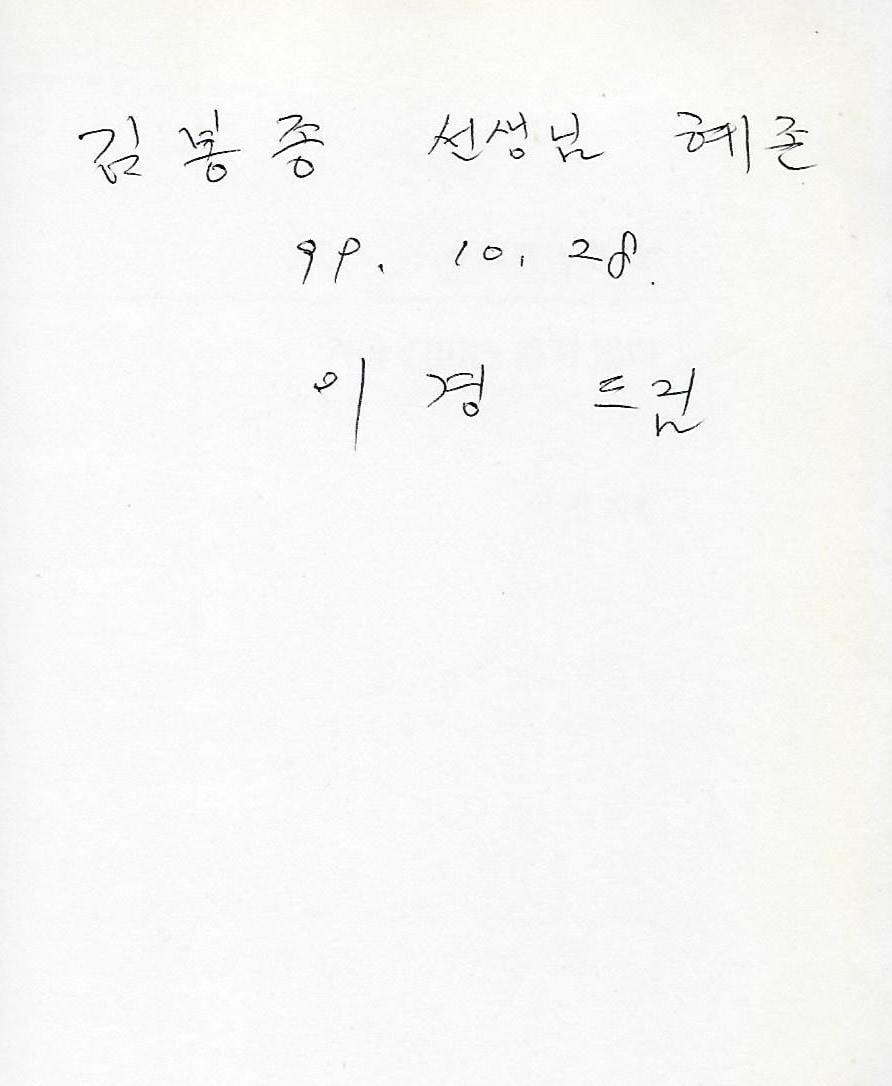 김봉종 선생님 혜존
99. 10. 28.
이경 드림